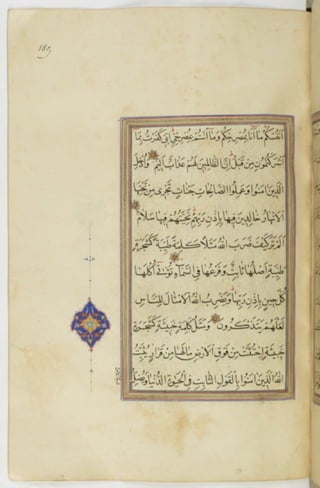 اَنْفُسَكُمْ مَا اَنَا بِمُصْرِخِكُمْ وَمَا اَنْتُمْ بِمُصْرِخِيَّ اِنِّي كَفَرْتُ بِمَا
اَشْرَكْتُمُونِ مِنْ قَبْلُ اِنَّ الظَّالِمِينَ لَهُمْ عَذَابٌ اَلِيمٌ وَاُدْخِلَ
الَّذِينَ اٰمَنُوا وَعَمِلُوا الصَّالِحَاتِ جَنَّاتٍ تَجْرِي مِنْ تَحْتِهَا
الْاَنْهَارُ خَالِدِينَ فِيهَا بِاِذْنِ رَبِّهِمْ تَحِيَّتُهُمْ فِيهَا سَلَامٌ
اَلَمْ تَرَ كَيْفَ ضَرَبَ اللّٰهُ مَثَلًا كَلِمَةً طَيِّبَةً كَشَجَرَةٍ
طَيِّبَةٍ اَصْلُهَا ثَابِتٌ وَفَرْعُهَا فِي السَّمَاءِ تُؤْتِي اُكُلَهَا
كُلَّ حِينٍ بِاِذْنِ رَبِّهَا وَيَضْرِبُ اللّٰهُ الْاَمْثَالَ لِلنَّاسِ
لَعَلَّهُمْ يَتَذَكَّرُونَ وَمَثَلُ كَلِمَةٍ خَبِيثَةٍ كَشَجَرَةٍ
خَبِيثَةٍ اجْتُثَّتْ مِنْ فَوْقِ الْاَرْضِ مَا لَهَا مِنْ قَرَارٍ يُثَبِّتُ
اللّٰهُ الَّذِينَ اٰمَنُوا بِالْقَوْلِ الثَّابِتِ فِي الْحَيٰوةِ الدُّنْيَا وَيُضِلُّ